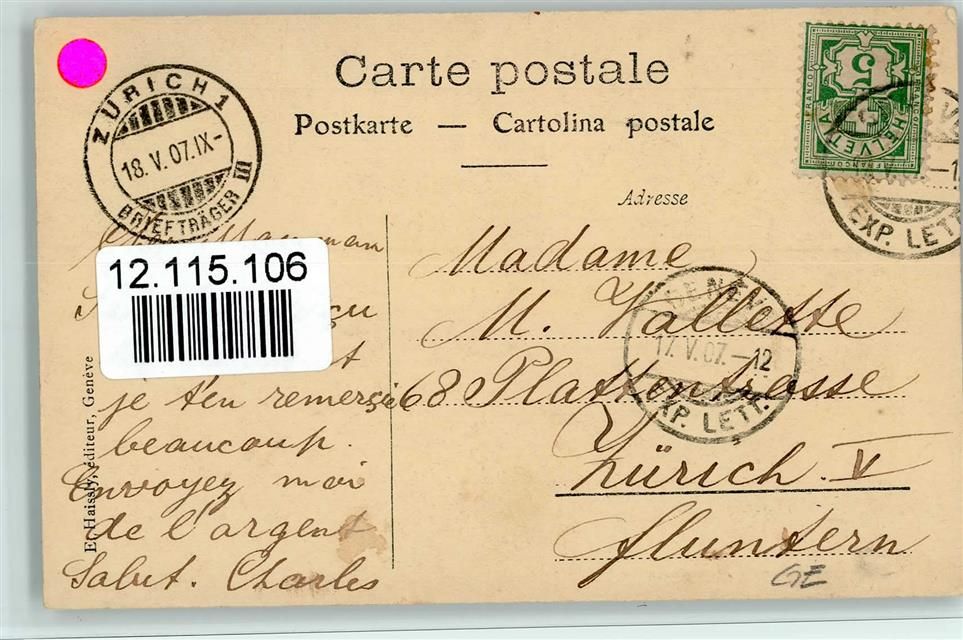 Carte postale
Postkarte — Cartolina postale
Adresse
ZÜRICH 1
18. V. 07. IX-
BRIEFTRÄGER III
5
FRANCO
HELVETIA
GENÈVE
17. V. 07. -12
EXP. LETT.
EXP. LETT.
12.115.106
E. Haissly, éditeur, Genève
Maman
çu
je t'en remercie
beaucoup.
Envoyez moi
de l'argent
Salut. Charles
Madame
M. Vallette
68 Plattenstrasse
Zürich V
fluntern
GE